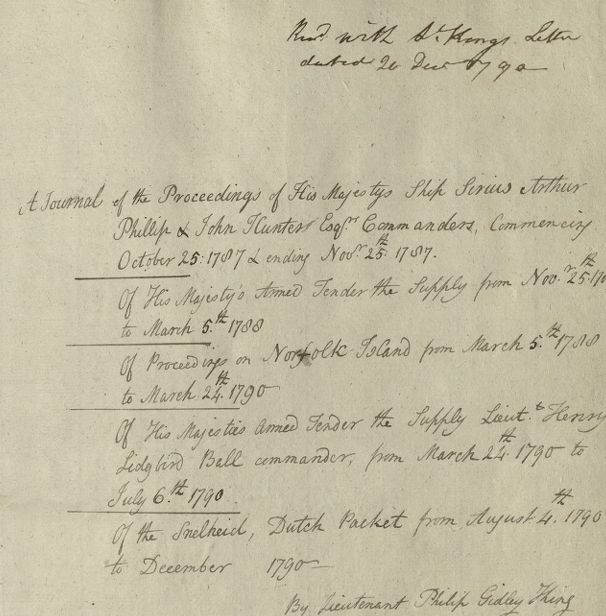 Recd. with Lt. Kings Letter
dated 20 Decr 1790
A Journal of the Proceedings of His Majestys Ship Sirius Arthur
Phillip & John Hunter Esqrs. Commanders, Commencing
October 25: 1787 & ending Novr. 25th 1787.
Of His Majesty's Armed Tender the Supply from Novr. 25th 170
to March 5.th 1788
Of Proceedings on Norfolk Island from March 5.th 1788
to March 24.th 1790
Of His Majesties Armed Tender the Supply Lieut.t Henry
Lidgbird Ball commander, from March 24.th 1790 to
July 6.th 1790
Of the Snelheid, Dutch Packet from August 4.th 1790
to December 1790
By Lieutenant Philip Gidley King